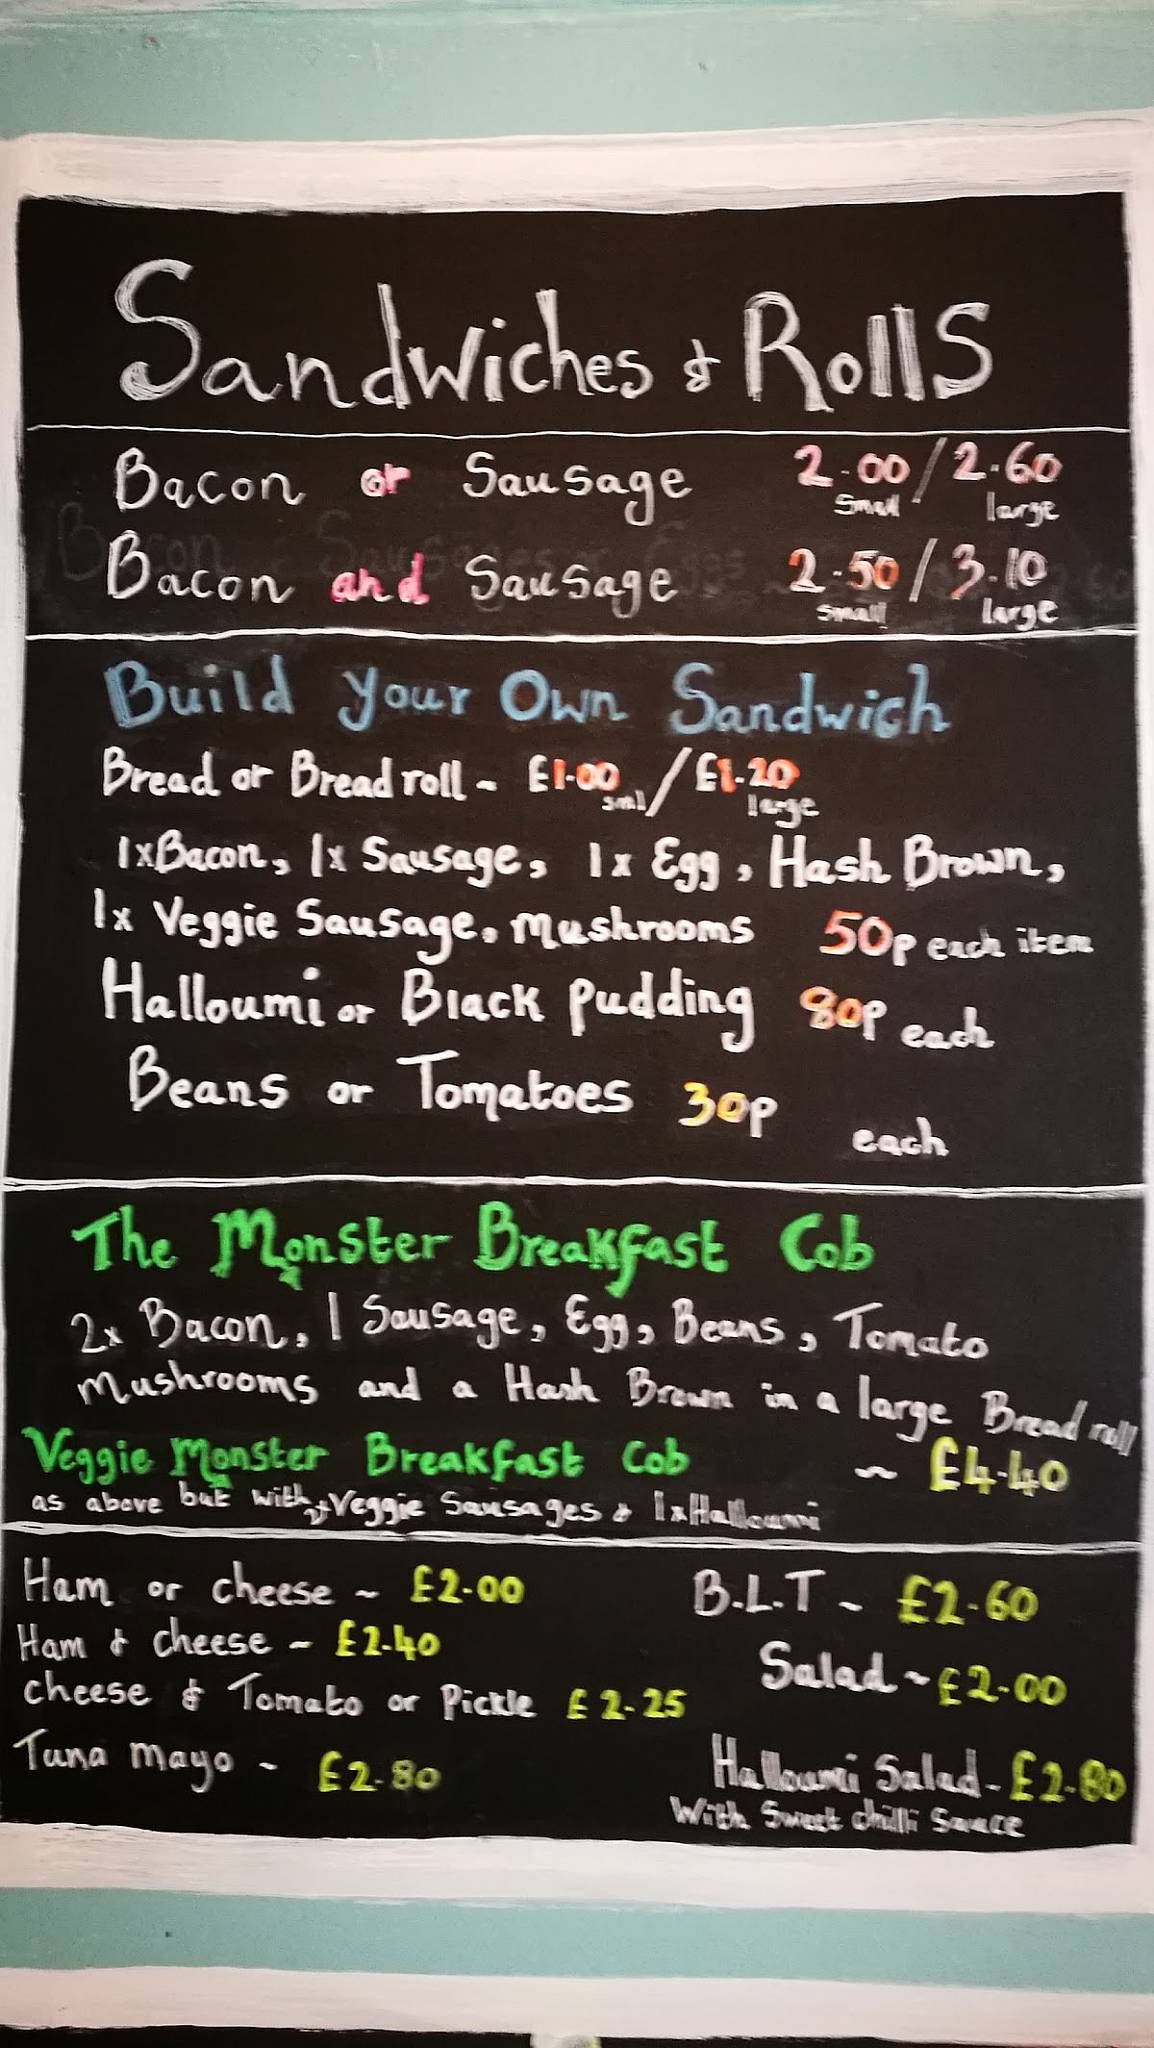 Sandwiches & Rolls
Bacon or Sausage 2.00 / 2.60
small large
Bacon and Sausage 2.50 / 3.10
small large
Build Your Own Sandwich
Bread or Bread roll ~ £1.00 / £1.20
large
1xBacon, 1x Sausage, 1x Egg, Hash Brown,
1x Veggie Sausage, mushrooms 50p each item
Halloumi or Black pudding 80p each
Beans or Tomatoes 30p each
The Monster Breakfast Cob
2x Bacon, 1 Sausage, Egg, Beans, Tomato
Mushrooms and a Hash Brown in a large Bread roll
Veggie Monster Breakfast Cob ~ £4.40
as above but with Veggie Sausages & 1xHalloumi
Ham or cheese ~ £2.00
Ham & cheese ~ £2.40
cheese & Tomato or Pickle £2.25
Tuna mayo ~ £2.80
B.L.T ~ £2.60
Salad ~ £2.00
Halloumi Salad ~ £2.80
With Sweet chilli Sauce